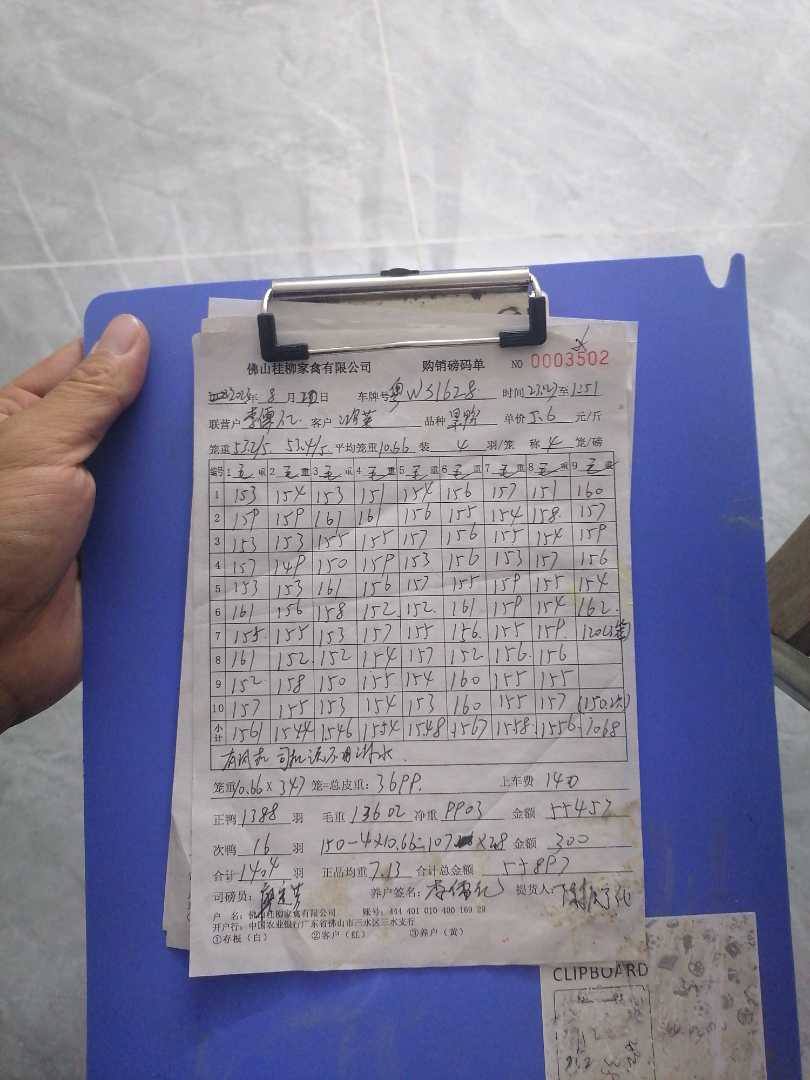 佛山桂柳家禽有限公司 购销磅码单 NO 0003502
年 8 月 日 车牌号 粤WS1628 时间 至 1:51
联营户 客户 品种 单价 5.6 元/斤
笼重 53.2/5. 53.4/5 平均笼重 10.66 装 4 羽/笼 称 4 笼/磅
编号 1 毛重 2 毛重 3 毛重 4 毛重 5 毛重 6 毛重 7 毛重 8 毛重 9 毛重
1 153 154 153 151 154 156 157 151 160
2 159 159 161 161 156 155 154 158 157
3 153 153 155 155 157 156 155 154 159
4 157 149 150 159 153 156 153 157 156
5 153 153 161 156 157 155 159 155 154
6 161 156 158 152 152 161 159 154 162
7 155 155 153 157 155 156 155 159 120(3笼)
8 161 152 152 154 157 152 156 156
9 152 158 150 155 154 160 155 155
10 157 155 153 154 153 160 155 157 (150.次)
小计 1561 1544 1546 1554 1548 1567 1558 1556 1068
有风机 司机说不用淋水
笼重 10.66 × 347 笼=总皮重: 3699. 上车费 140
正鸭 1388 羽 毛重 13602 净重 9903 金额 55457
次鸭 16 羽 150-4×10.66=107 ×2.8 金额 300
合计 1404 羽 正品均重 7.13 合计总金额 55897
司磅员: 养户签名: 提货人:
户 名: 佛山桂柳家禽有限公司 账号: 444 401 010 400 169 29
开户行: 中国农业银行广东省佛山市三水区三水支行
①存板（白） ②客户（红） ③养户（黄）
CLIPBOARD